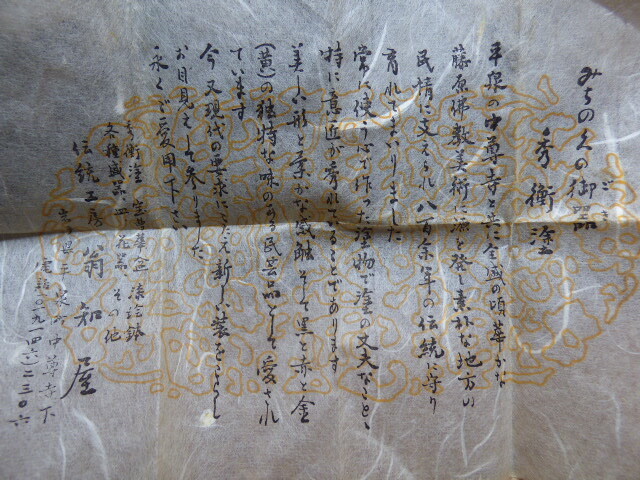 みちのくの御器
ごき
秀衡塗
平泉の中尊寺と共に全盛の頃華かな
藤原佛教美術に源を発し素朴な地方の
民情に支えられ八百余年の伝統に守り
育れてまいりました
常に使う心で作った塗物で塗の丈夫なことゝ
特に意匠が秀れてゐることであります
美しい形と柔かな感触そして黒と赤と金
(黄)の独特な味のある民芸品として愛され
ています
今又現代の要求にこたえ新しい装をこらし
お目見えして参りました
永くご愛用下さい
秀衡塗
文種盛器 花器 その他
伝統工房 翁知屋
中尊寺下
電話〇九一四六-二-二三〇六